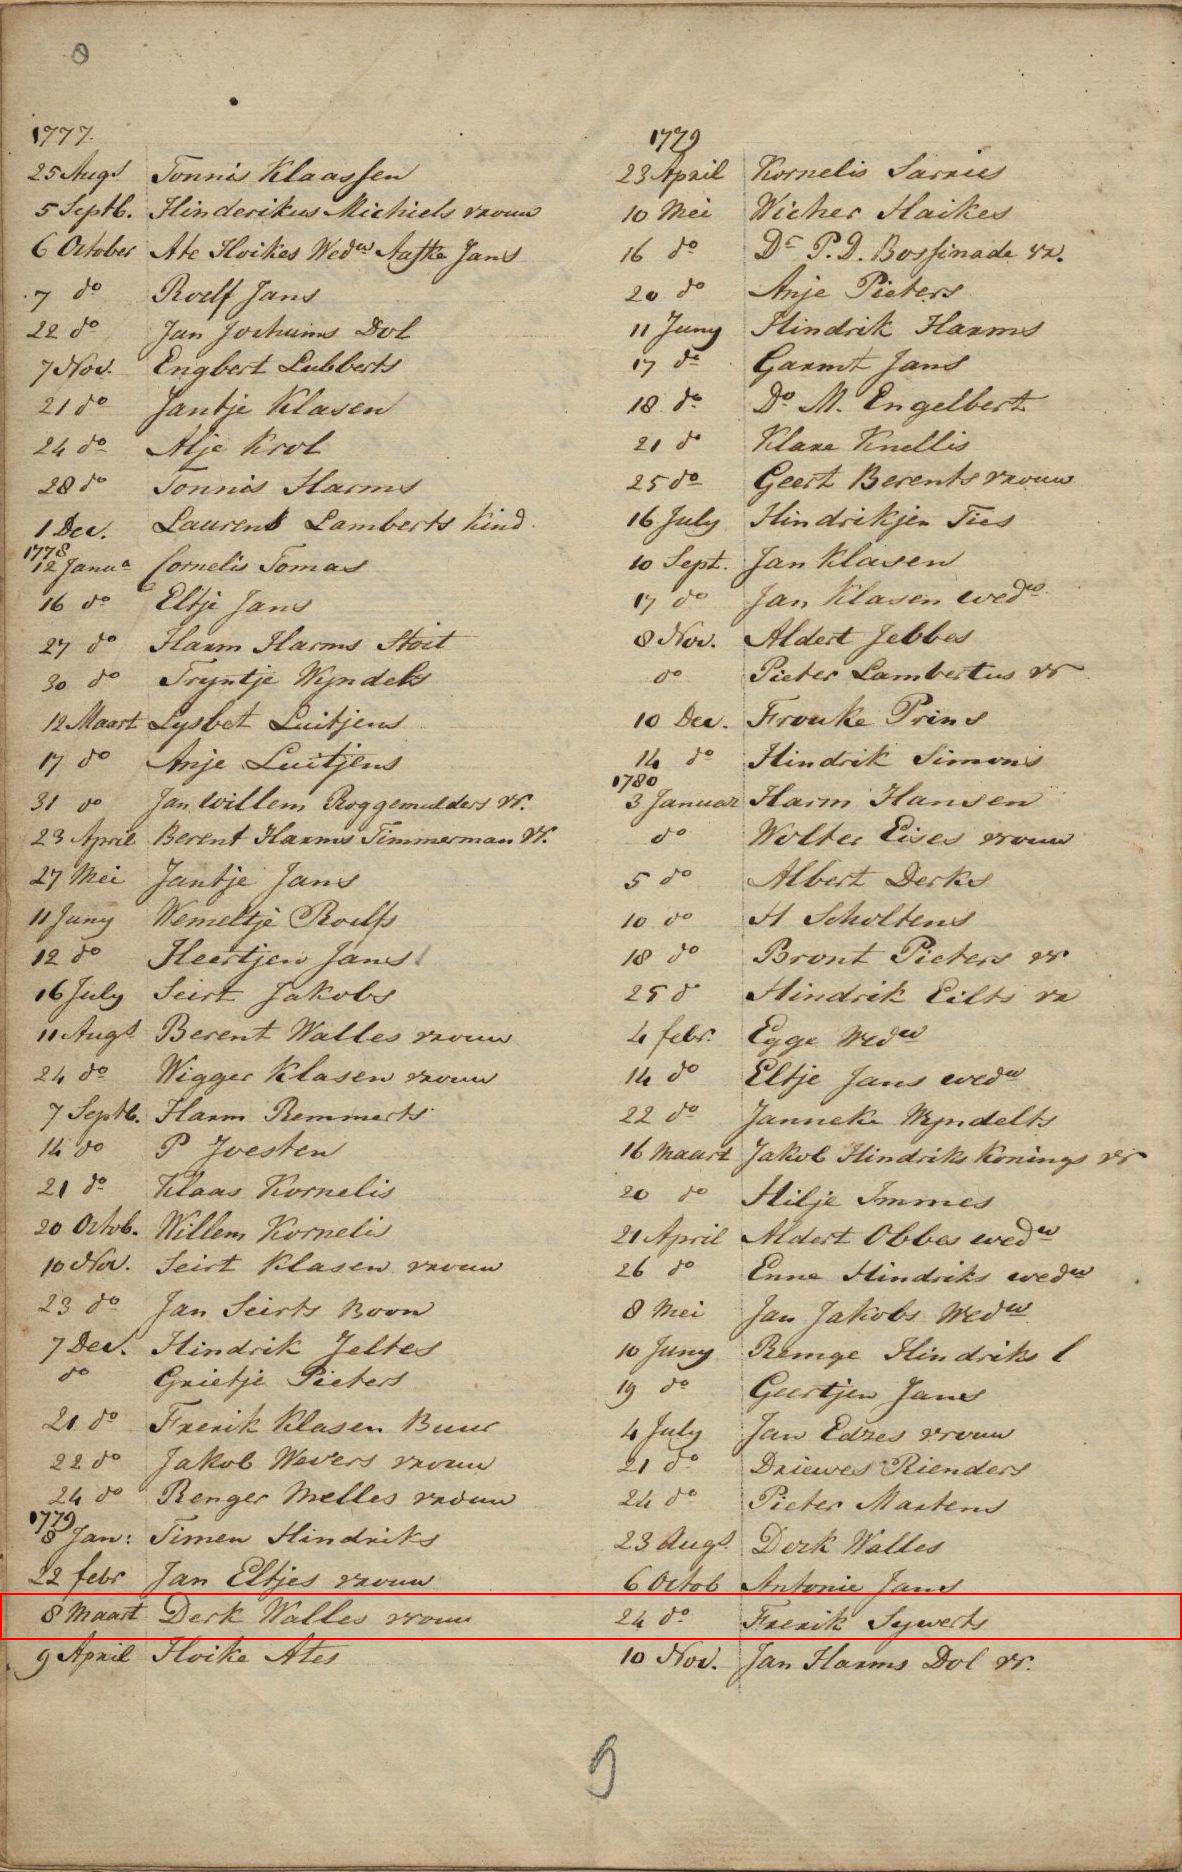 1777.
25 Augs Tonnis Klaassen
5 Septb. Hinderikus Michiels vrouw
6 October Ate Hoikes Wedw Aafke Jans
7 do Roelf Jans
22 do Jan Jochums Dol
7 Nov. Engbert Lubberts
21 do Jantje Klasen
24 do Alje Krol
28 do Tonnis Harms
1 Dec. Laurens Lamberts Kind
1778
12 Janua Cornelis Tomas
16 do Eltje Jans
27 do Harm Harms Stoit
30 do Tryntje Wyndels
12 Maart Lysbet Luitjens
17 do Anje Luitjens
31 do Jan Willem Roggemulders vr.
23 April Berent Harms Timmerman Vr.
27 Mei Jantje Jans
11 Juny Wemeltje Roelfs
12 do Heertjen Jans
16 July Seirt Jakobs
11 Augs Berent Walles vrouw
24 do Wigger Klasen vrouw
7 Septb. Harm Remmerts
14 do P Joesten
21 do Klaas Kornelis
20 Octob. Willem Kornelis
10 Nov. Seirt Klasen vrouw
23 do Jan Seirts Boon
7 Dec. Hindrik Jeltes
do Grietje Pieters
21 do Frerik Klasen Buur
22 do Jakob Wevers vrouw
24 do Renger Melles vrouw
1779
8 Jan: Timen Hindriks
22 febr Jan Eltjes vrouw
8 Maart Derk Walles vrouw
9 April Hoike Ates
1779
23 April Kornelis Sarries
10 Mei Wicher Haikes
16 do Dr P. D. Bossinade vr.
20 do Anje Pieters
11 Juny Hindrik Harms
17 do Garmt Jans
18 do Do M. Engelbert
21 do Klare Knellis
25 do Geert Berents vrouw
16 July Hindrikjen Ties
10 Sept. Jan Klasen
17 do Jan Klasen wedw
8 Nov. Aldert Jebbes
do Pieter Lambertus vr
10 Dec. Frouke Prins
14 do Hindrik Simons
1780
3 Januar Harm Hansen
do Wolter Eises vrouw
5 do Albert Derks
10 do H Scholtens
18 do Bront Pieters vr
25 do Hindrik Eilts vr
4 febr. Egge Wedw
14 do Eltje Jans wedw
22 do Janneke Wyndelts
16 maart Jakob Hindriks Konings vr
20 do Hilje Immes
21 April Aldert Obbes wedw
26 do Enne Hindriks wedw
8 Mei Jan Jakobs Wedw
10 Juny Remge Hindriks l
19 do Geertjen Jans
4 July Jan Edzes vrouw
21 do Driewes Rienders
24 do Pieter Martens
23 Augs. Derk Walles
6 Octob Antonie Jans
24 do Frerik Sywerts
10 Nov. Jan Harms Dol vr.
9